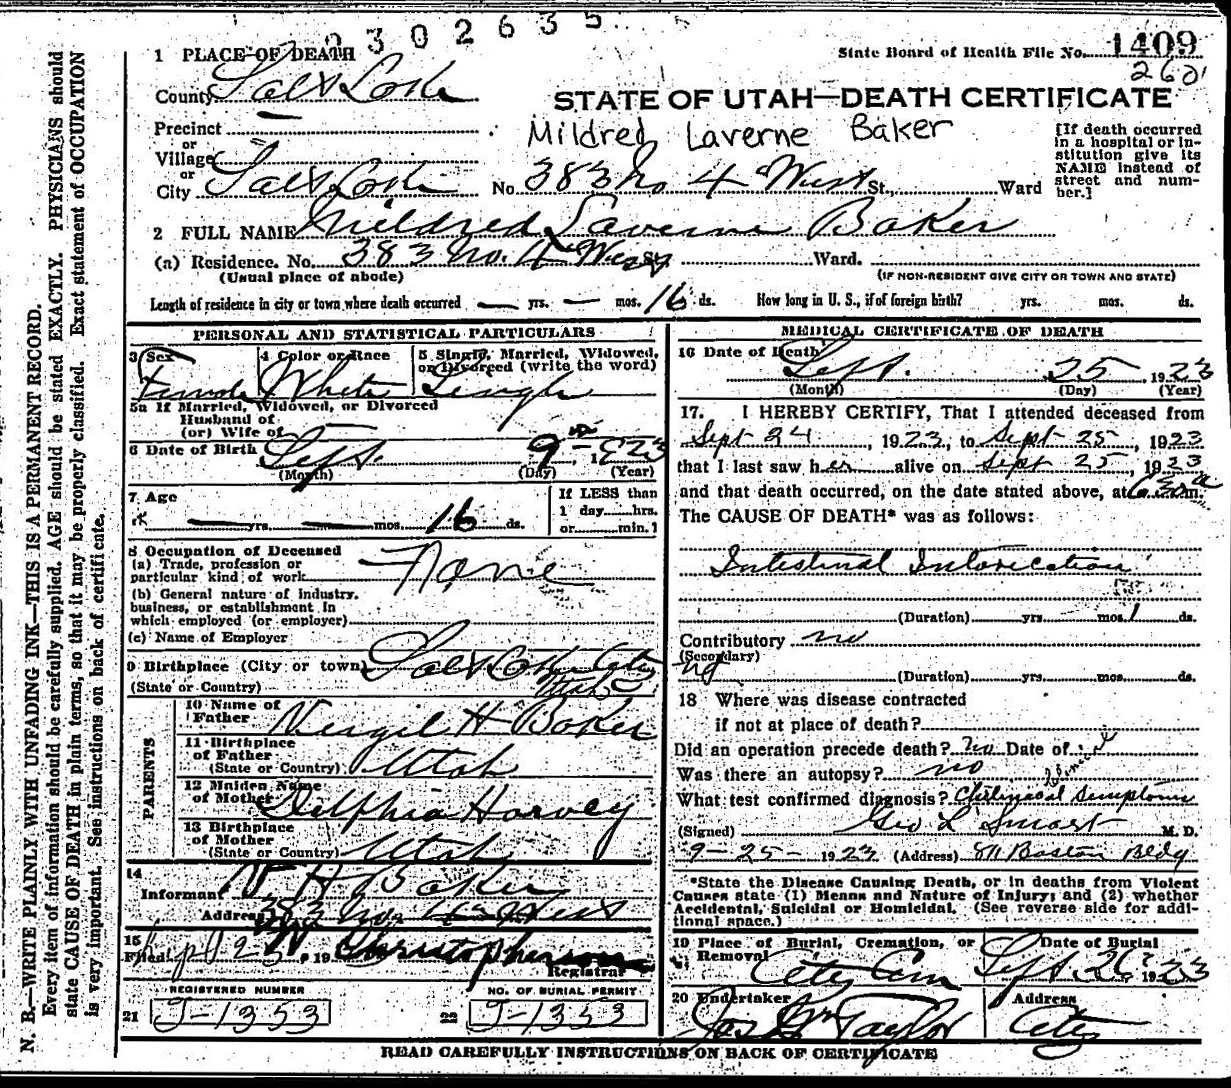 2302635
1 PLACE OF DEATH
State Board of Health File No. 1409
260
County Salt Lake
STATE OF UTAH—DEATH CERTIFICATE
Precinct
or
Village
or
City Salt Lake No. 383 No. 4 West St., Ward
Mildred Laverne Baker
[If death occurred
in a hospital or in-
stitution give its
NAME instead of
street and num-
ber.]
2 FULL NAME Mildred Laverne Baker
(a) Residence. No. 383 No. 4 West St. Ward.
(Usual place of abode) (IF NON-RESIDENT GIVE CITY OR TOWN AND STATE)
Length of residence in city or town where death occurred — yrs. — mos. 16 ds. How long in U. S., if of foreign birth? yrs. mos. ds.
PERSONAL AND STATISTICAL PARTICULARS
3 Sex Female
4 Color or Race White
5 Single, Married, Widowed,
or Divorced (write the word)
Single
5a If Married, Widowed, or Divorced
Husband of
(or) Wife of
6 Date of Birth Sept. 9 1923
(Month) (Day) (Year)
7 Age
— yrs. — mos. 16 ds.
If LESS than
1 day hrs.
or min.
8 Occupation of Deceased
(a) Trade, profession or
particular kind of work None
(b) General nature of industry,
business, or establishment in
which employed (or employer)
(c) Name of Employer
9 Birthplace (City or town) Salt Lake City
(State or Country) Utah
PARENTS
10 Name of
Father Virgil H Baker
11 Birthplace
of Father
(State or Country) Utah
12 Maiden Name
of Mother Delphia Harvey
13 Birthplace
of Mother
(State or Country) Utah
14
Informant V. H. Baker
Address 383 No. 4 West
15
Filed 19 Christopherson
Registrar
REGISTERED NUMBER
21 J-1353
NO. OF BURIAL PERMIT
22 J-1353
MEDICAL CERTIFICATE OF DEATH
16 Date of Death
Sept. 25, 1923
(Month) (Day) (Year)
17. I HEREBY CERTIFY, That I attended deceased from
Sept 24, 1923, to Sept 25, 1923
that I last saw her alive on Sept 25, 1923
and that death occurred, on the date stated above, at m.
The CAUSE OF DEATH* was as follows:
Intestinal Intoxication
(Duration) yrs. mos. 1 ds.
Contributory no
(Secondary)
(Duration) yrs. mos. ds.
18 Where was disease contracted
if not at place of death?
Did an operation precede death? No Date of
Was there an autopsy? no
Clinical
What test confirmed diagnosis? symptoms
(Signed) Geo L Smart M. D.
9-25-1923 (Address) 811 Boston Bldg
*State the Disease Causing Death, or in deaths from Violent
Causes state (1) Means and Nature of Injury; and (2) whether
Accidental, Suicidal or Homicidal. (See reverse side for addi-
tional space.)
19 Place of Burial, Cremation, or
Removal City Cem
Date of Burial
Sept. 26 1923
20 Undertaker
Jos Wm Taylor
Address
City
READ CAREFULLY INSTRUCTIONS ON BACK OF CERTIFICATE
N. B.—WRITE PLAINLY WITH UNFADING INK—THIS IS A PERMANENT RECORD.
Every item of information should be carefully supplied. AGE should be stated EXACTLY. PHYSICIANS should
state CAUSE OF DEATH in plain terms, so that it may be properly classified. Exact statement of OCCUPATION
is very important. See instructions on back of certificate.